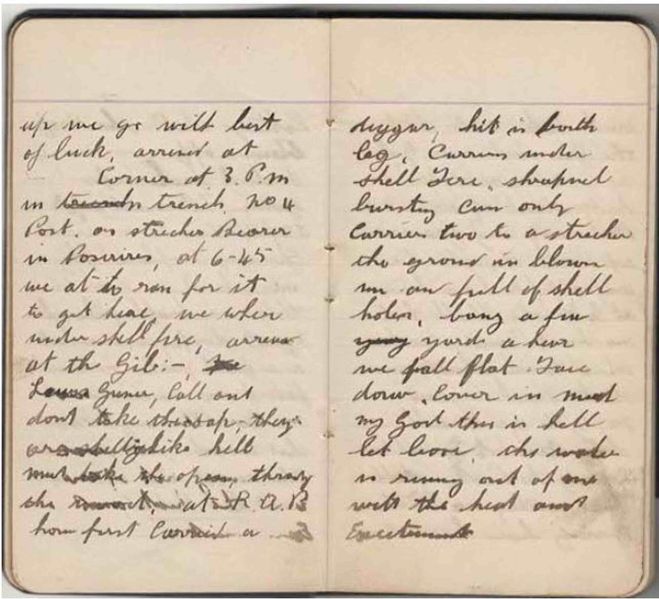 up we go with best
of luck, arrived at
Corner at 3. P.m
in trench no 4
Post. as strecher Bearer
in Posirires, at 6-45
we at to ran for it
to get hear, we wher
under shell fire, arrived
at th Gib:-,
Gunner, Call out
dont take the sap, they
are shelling like hell
must take the open, through
the at R. A. P.
hom first Carried a
digger, hit in both
leg, Carrers under
shell Fire, shrapnel
bursting Can only
Carriers two to a strecher
the ground in blown
full of shell
holes, bang a few
yards a hear
we fall flat. Face
down. Cover in mud
my God this is hell
let loose, the water
is runing out of me
with the heat and
Excitement